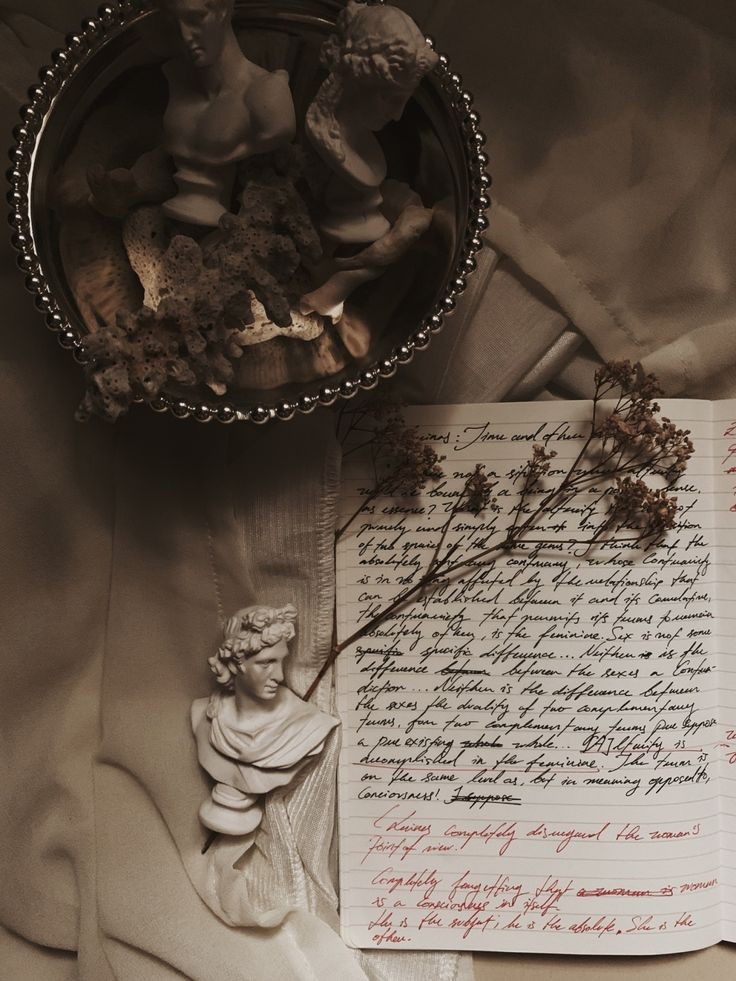 : Time and other
not a situation where alterity
borne by a being in a positive sense,
as essence? What is the alterity that does not
purely and simply enter into the opposition
of two species of the same genus? I think that the
absolutely contrary contrary, whose contrariety
is in no way affected by the relationship that
can be established between it and its correlative,
the contrariety that permits its terms to remain
absolutely other, is the feminine. Sex is not some
specific difference... Neither is the
difference between the sexes a contra-
diction... Neither is the difference between
the sexes the duality of two complementary
terms, for two complementary terms presuppose
a pre existing whole... [A]lterity is
accomplished in the feminine. The term is
on the same level as, but in meaning opposed to,
consciousness! I suppose
completely disregard the woman's
point of view!
Completely forgetting that a woman is woman
is a consciousness in itself.
He is the subject, he is the absolute. She is the
other.